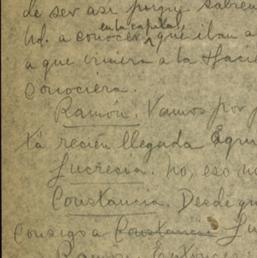 de ser así porque sabien
en la capital,
Ud. a conocer que iban a
a que viniera a la Haci
conociera.
Ramón. Vamos por p
tá recién llegada aqu
Lucrecia. No, eso no
Constancia. Desde qu
consigo a Constancia Lu
Ramón. Entonces